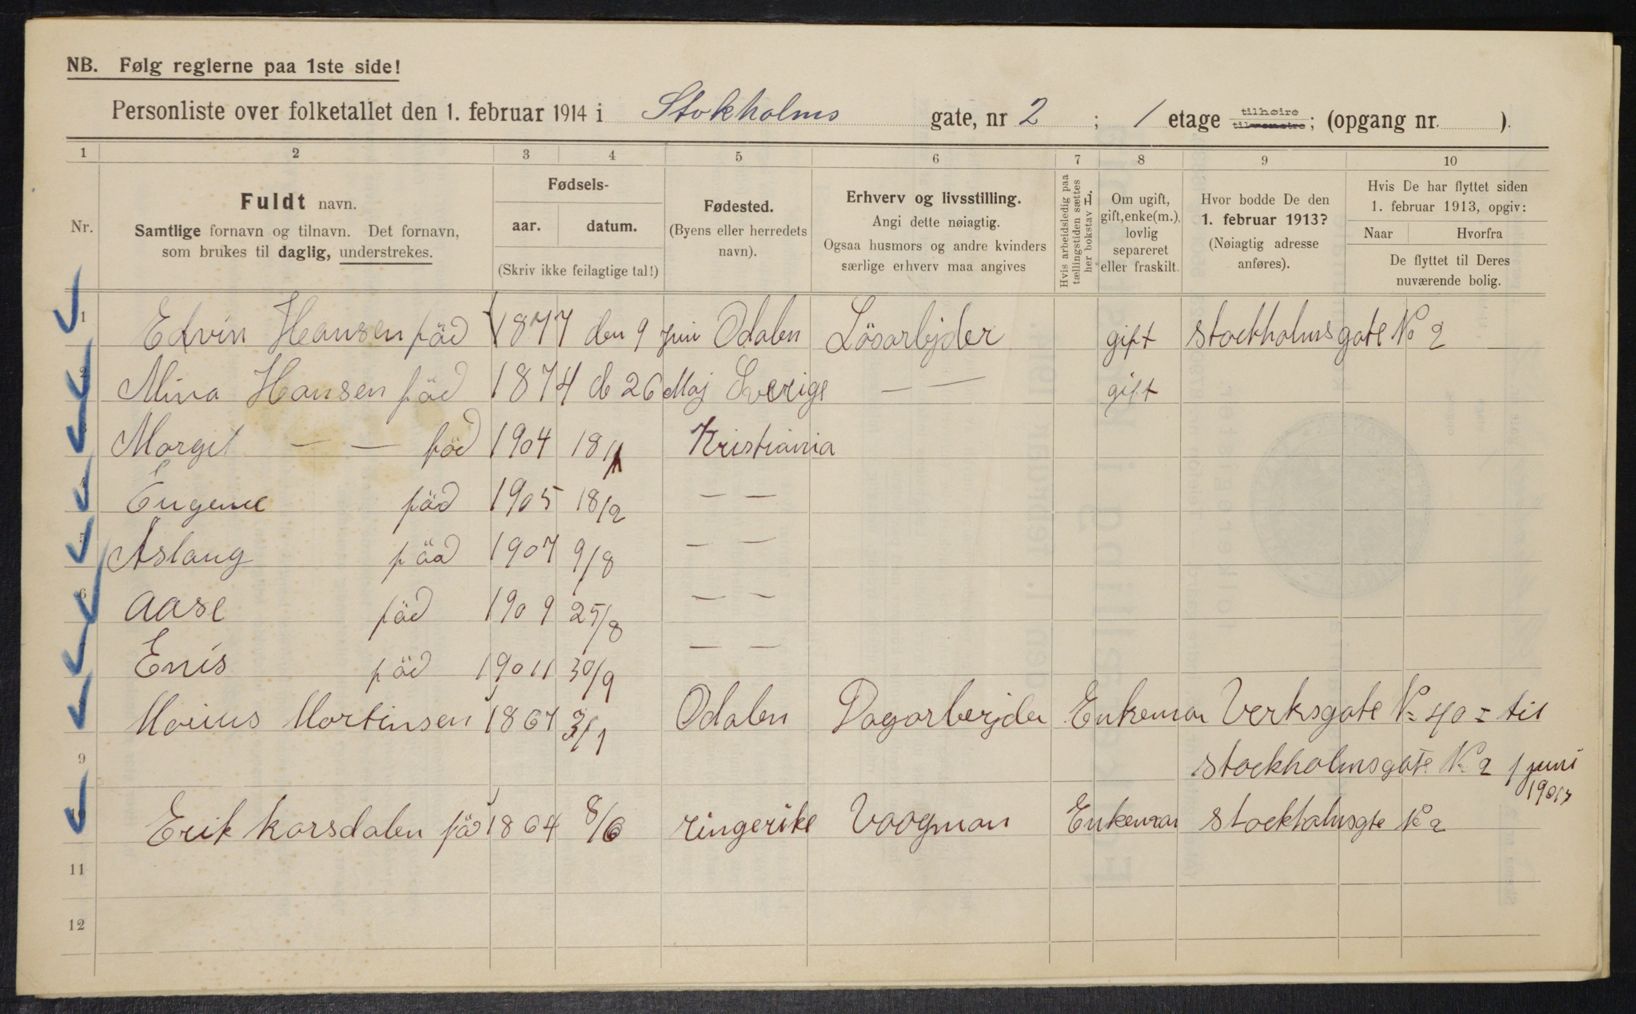 NB. Følg reglerne paa 1ste side!
Personliste over folketallet den 1. februar 1914 i Stokholms gate, nr 2 ; 1 etage tilhøire ; (opgang nr. ).
1 2 3 4 5 6 7 8 9 10
Nr.
Fuldt navn.
Samtlige fornavn og tilnavn. Det fornavn,
som brukes til daglig, understrekes.
Fødsels-
aar. datum.
(Skriv ikke feilagtige tal!)
Fødested.
(Byens eller herredets
navn).
Erhverv og livsstilling.
Angi dette nøiagtig.
Ogsaa husmors og andre kvinders
særlige erhverv maa angives
Hvis arbeidsledig paa
tællingstiden sættes
her bokstav L.
Om ugift,
gift, enke(m.),
lovlig
separeret
eller fraskilt.
Hvor bodde De den
1. februar 1913?
(Nøiagtig adresse
anføres).
Hvis De har flyttet siden
1. februar 1913, opgiv:
Naar Hvorfra
De flyttet til Deres
nuværende bolig.
1 Edvin Hansen föd 1877 den 9 juni Odalen Lösarbjder gift stockholmsgate No 2
Mina Hansen föd 1874 d 26 Maj Sverige — — gift
Margit — — föd 1904 18/1 Kristiania
Eugene föd 1905 18/2 — —
Aslaug föd 1907 9/8 — —
6 Aase föd 1909 25/8 — —
Enis föd 19011 30/9 — —
Marius Martinsen 1867 3/1 Odalen Dagarbejder Enkeman Verksgate No 40 = til
9 stockholmsgate No 2 1 juni
Erik Karsdalen föd 1864 8/6 ringerike Voogman Enkeman stockholmsgte No 2
11
12